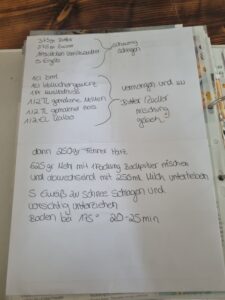 375gr Butter
275gr Zucker
5 Eigelb
schaumig
schlagen
1 EL Zimt
1 EL Lebkuchengewürz
1/2 TL gemahlene Nelken
1/2 TL gemahlene
1/2 EL Kakao
vermengen und in
Butter Zucker
mischung
geben
dann 250gr
625gr Mehl mit 1 Packung Backpulver mischen
und abwechselnd mit 250ml Milch unterheben
5 Eiweiß zu Schnee schlagen und
vorsichtig unterziehen
Backen bei 175° 20-25min